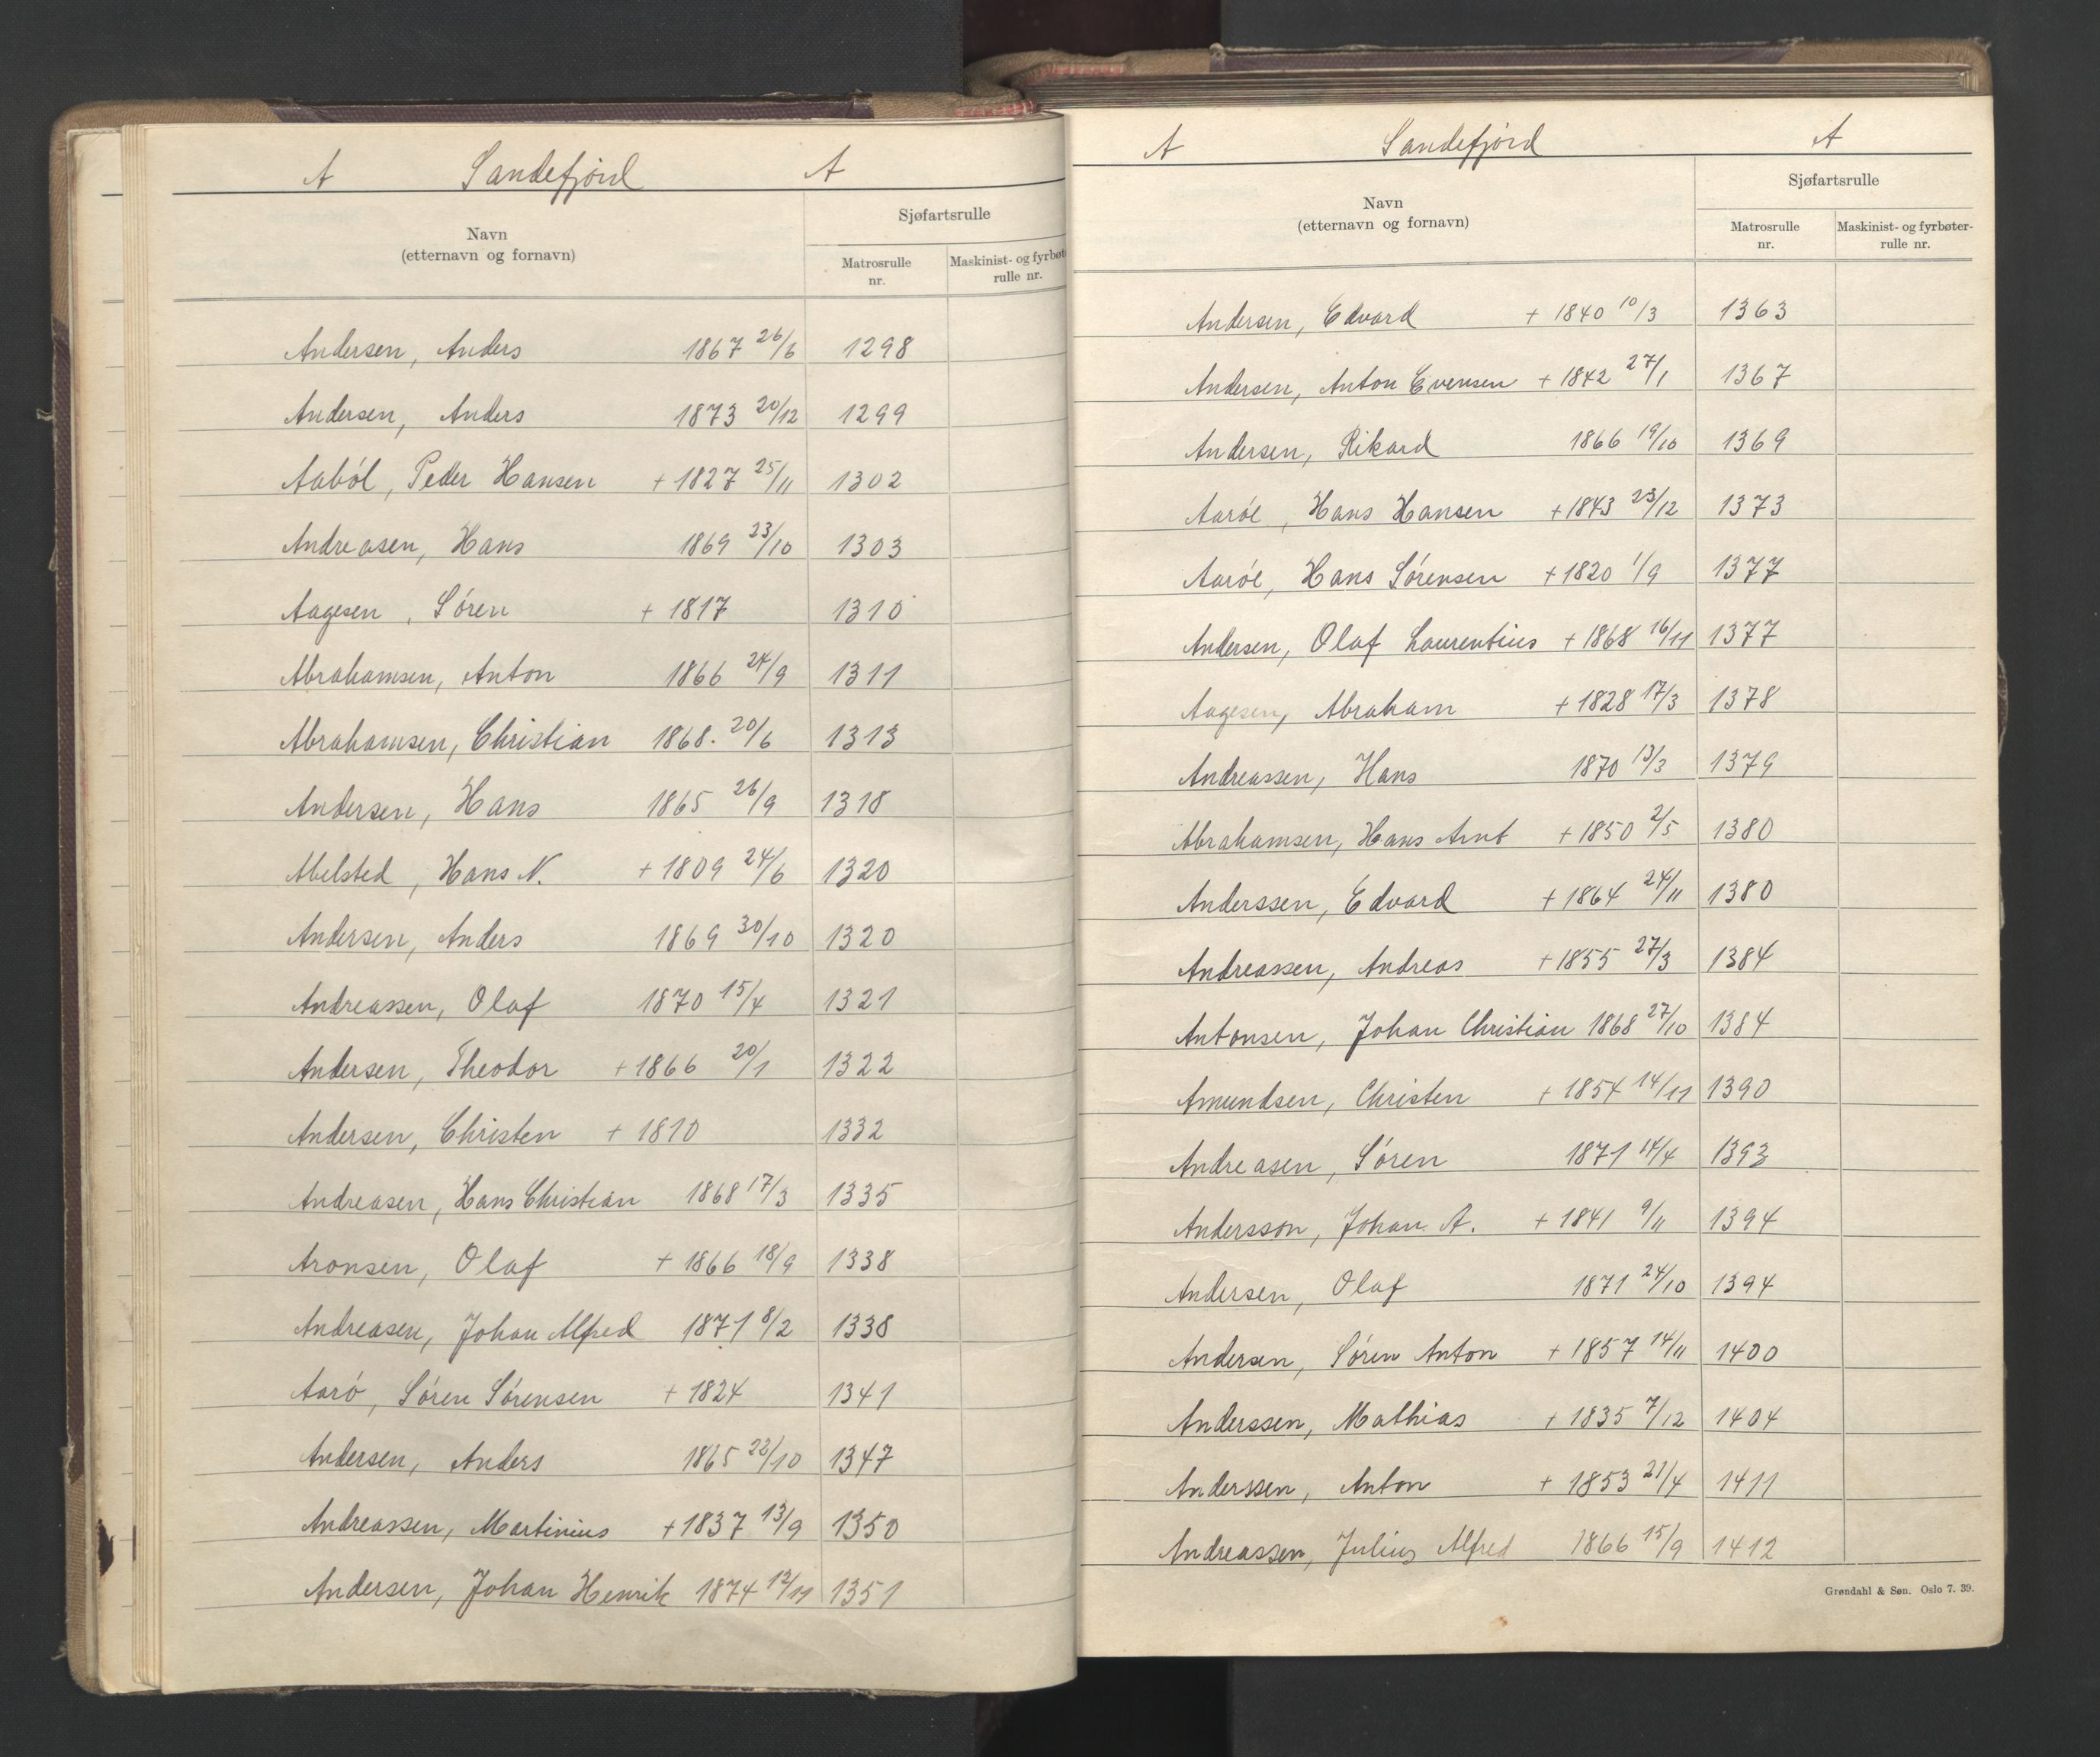 A Sandefjórd A
Navn
(etternavn og fornavn)
Sjøfartsrulle
Matrosrulle
nr.
Maskinist- og fyrbøt
rulle nr.
Andersen, Anders 1867 26/6 1298
Andersen, Anders 1873 20/12 1299
Aaból, Peder Hansen + 1827 25/11 1302
Andreasen, Hans 1869 23/10 1303
Aagesen, Sóren + 1817 1310
Abrahamsen, Anton 1866 24/9 1311
Abrahamsen, Christian 1868. 20/6 1313
Andersen, Hans 1865 26/9 1318
Abelsted, Hans N. + 1809 24/6 1320
Andersen, Anders 1869 30/10 1320
Andreassen, Olaf 1870 15/4 1321
Andersen, Theodor + 1866 20/1 1322
Andersen, Christen + 1810 1332
Andreasen, Hans Christian 1868 17/3 1335
Aronsen, Olaf + 1866 18/9 1338
Andreasen, Johan Alfred 1871 8/2 1338
Aaró, Sóren Sórensen + 1824 1341
Andersen, Anders 1865 22/10 1347
Andreassen, Martinius + 1837 13/9 1350
Andersen, Johan Henrik 1874 12/11 1351
A Sandefjórd A
Navn
(etternavn og fornavn)
Sjøfartsrulle
Matrosrulle
nr.
Maskinist- og fyrbøter-
rulle nr.
Andersen, Edvard + 1840 10/3 1363
Andersen, Anton Evensen + 1842 27/1 1367
Andersen, Rikard 1866 19/10 1369
Aaróe, Hans Hansen + 1843 23/12 1373
Aaróe, Hans Sórensen + 1820 1/9 1377
Andersen, Olaf Laurentius + 1868 16/11 1377
Aagesen, Abraham + 1828 17/3 1378
Andreassen, Hans 1870 13/3 1379
Abrahamsen, Hans Arnt + 1850 2/5 1380
Anderssen, Edvard + 1864 24/11 1380
Andreassen, Andreas + 1855 27/3 1384
Antonsen, Johan Christian 1868 27/10 1384
Amundsen, Christen + 1854 14/11 1390
Andreasen, Sóren 1871 14/4 1393
Andersson, Johan A. + 1841 9/11 1394
Andersen, Olaf 1871 24/10 1394
Andersen, Sóren Anton + 1857 14/11 1400
Anderssen, Mathias + 1835 7/12 1404
Anderssen, Anton + 1853 21/4 1411
Andreassen, Julius Alfred 1866 15/9 1412
Grøndahl & Søn. Oslo 7. 39.